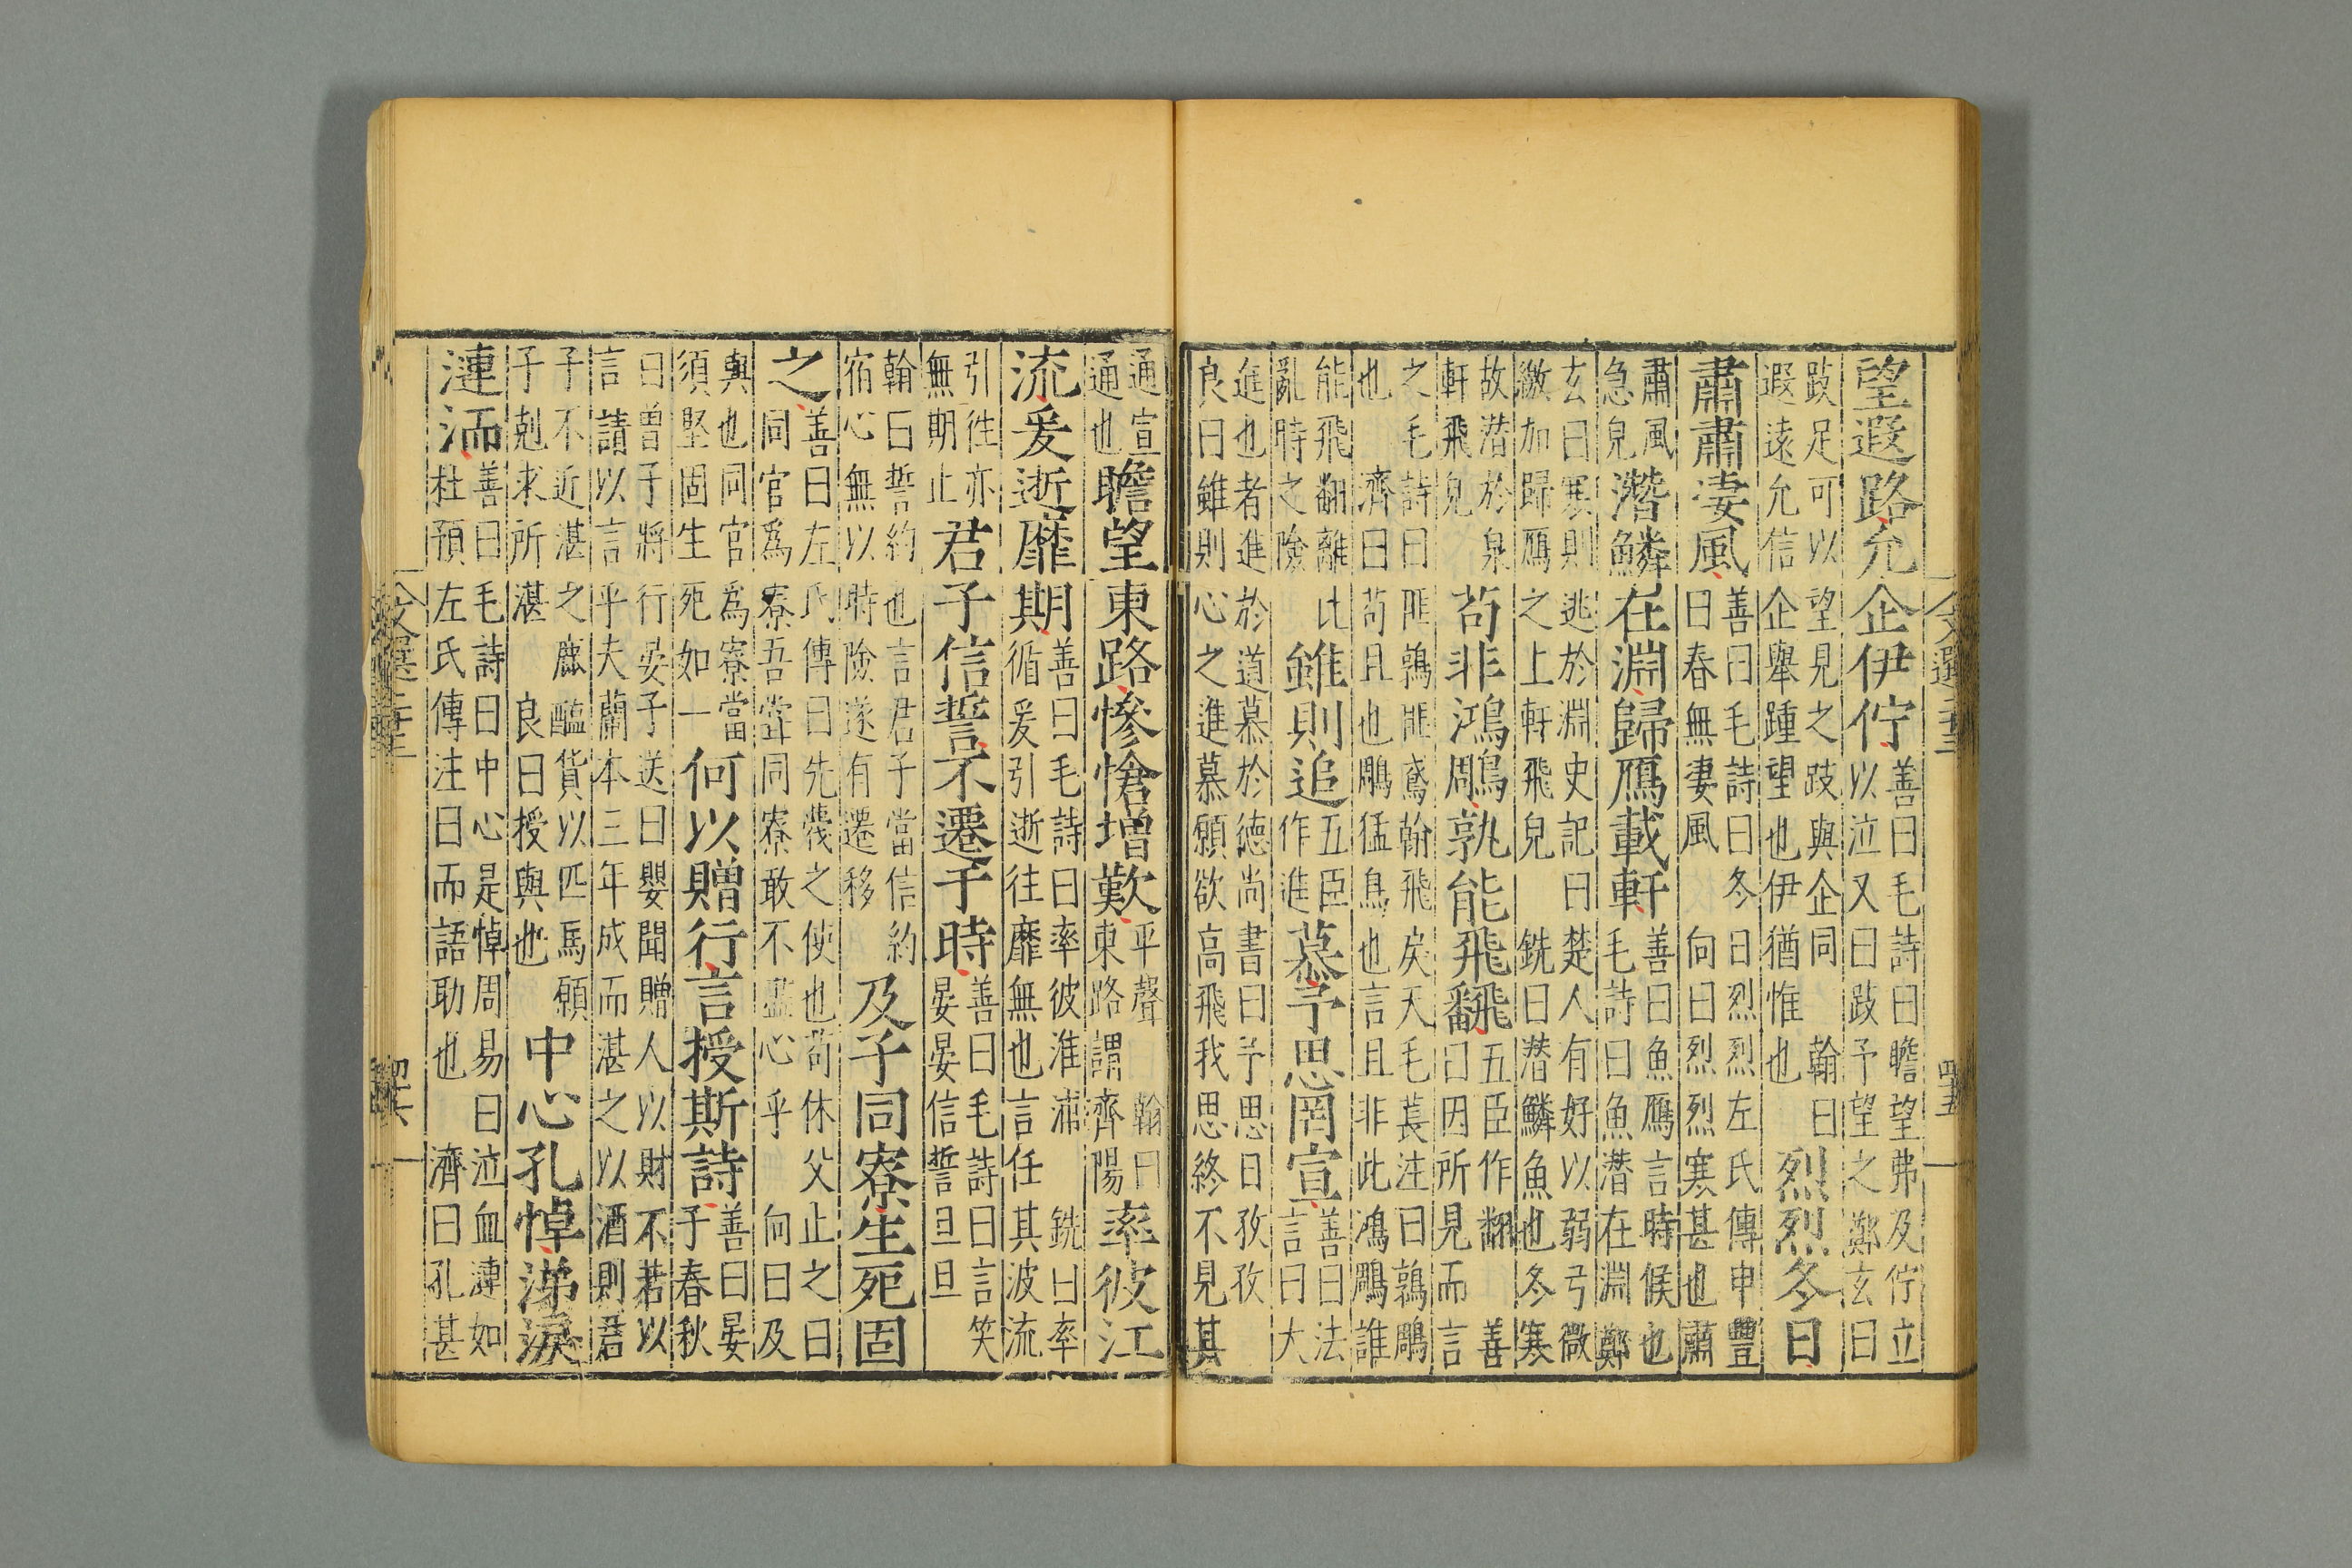 文選二十三 四十五
望遐路允企伊佇善曰毛詩曰瞻望弗及佇立
以泣又曰跂予望之鄭玄曰
跂足可以望見之跂與企同 翰曰
遐遠允信企舉踵望也伊猶惟也烈烈冬日
肅肅凄風善曰毛詩曰冬日烈烈左氏傳申豐
曰春無凄風 向曰烈烈寒甚也肅
肅風
急皃潛鱗在淵歸鴈載軒善曰魚鴈言時候也
毛詩曰魚潛在淵鄭
玄曰寒則逃於淵史記曰楚人有好以弱弓微
繳加歸鴈之上軒飛皃 銑曰潛鱗魚也冬寒
故潛於泉
軒飛皃苟非鴻鵰孰能飛飜五臣作翻 善
曰因所見而言
之毛詩曰匪鶉匪鳶翰飛戾天毛萇注曰鶉鵰
也 濟曰苟且也鵰猛鳥也言且非此鴻鵰誰
能飛翻離此
亂時之險雖則追五臣
作進慕予思罔宣善曰法
言曰大
進也者進於道慕於德尚書曰予思日孜孜
良曰雖則心之進慕願欲高飛我思終不見其
通宣
通也瞻望東路慘愴增歎平聲 翰曰
東路謂齊陽率彼江
流爰逝靡期善曰毛詩曰率彼淮浦 銑曰率
循爰引逝往靡無也言任其波流
引往亦
無期止君子信誓不遷于時善曰毛詩曰言笑
晏晏信誓旦旦
翰曰誓約也言君子當信約
宿心無以時險遂有遷移及子同寮生死固
之善曰左氏傳曰先蔑之使也荀休父止之曰
同官為寮吾甞同寮敢不盡心乎 向曰及
與也同官為寮當
須堅固生死如一何以贈行言授斯詩善曰晏
子春秋
曰曾子將行晏子送曰嬰聞贈人以財不若以
言請以言乎夫蘭本三年成而湛之以酒則君
子不近湛之麋醢貨以匹馬願
子剋求所湛 良曰授與也中心孔悼涕淚
漣洏善曰毛詩曰中心是悼周易曰泣血漣如
杜預左氏傳注曰而語助也 濟曰孔甚
文選二十三 四十六